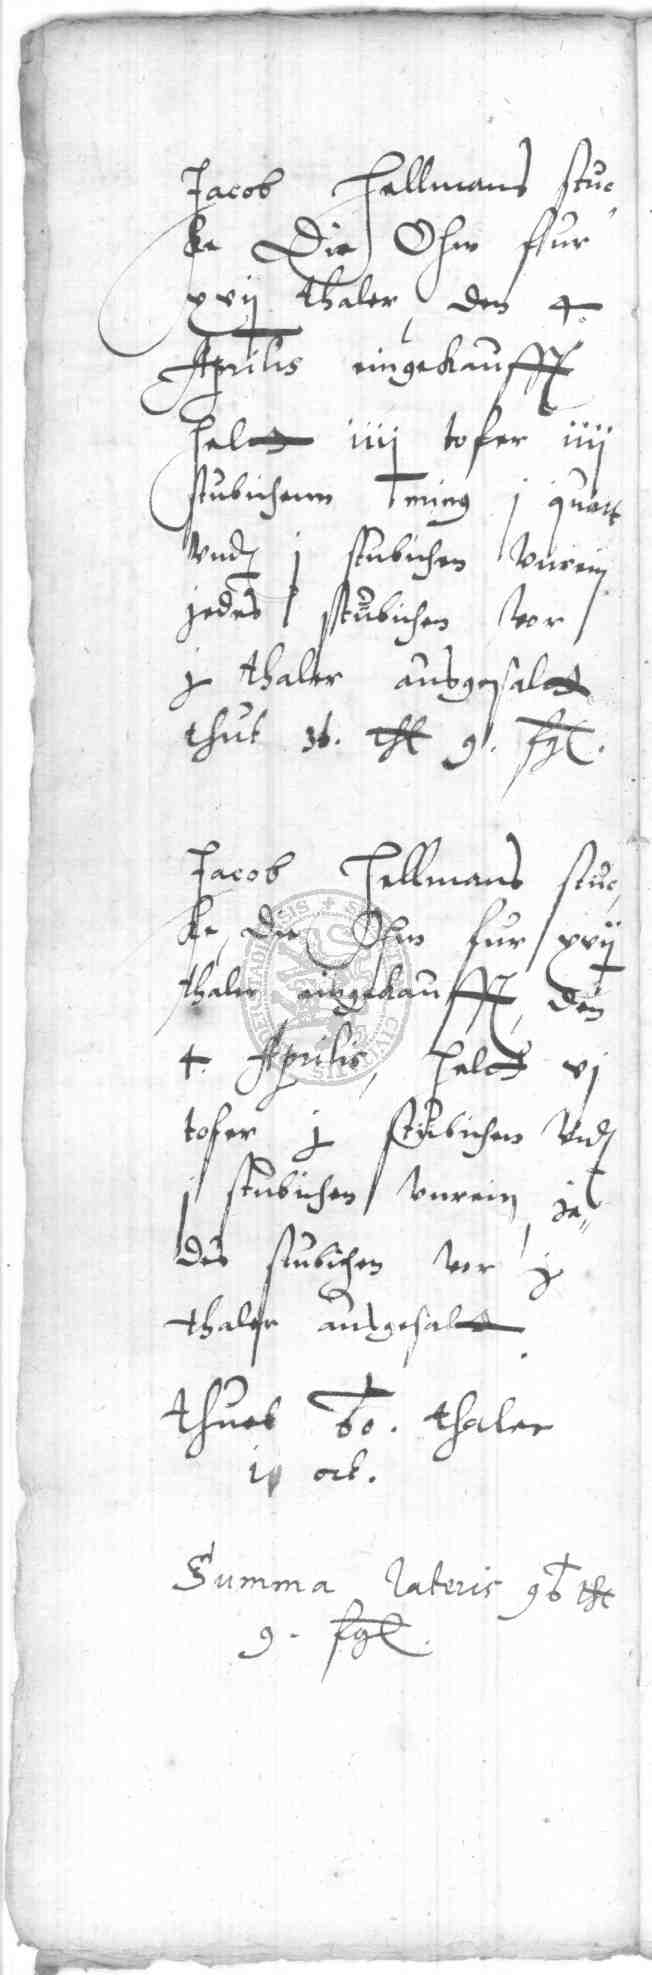 Jacob Hellmans stuc
ke Die Ohm ffur
xvij thaler, den 4.
Aprilis eingekaufft
helt iiij tofer iiij
stubichenn ming j quart
vnd j stubichen vnrein
jedes stubichen vor
j thaler ausgesalt
thut 36. thl 9. fgl.
Jacob Hellmans stuc,
ke, die Ohm fur xvij
thaler eingekaufft, den
4. Aprilis, helt vj
tofer j stubichen vnd
j stubichen vnrein, je"
des stubichen vor j
thaler ausgesalt.
thuet 60. thaler
1 ort.
Summa lateris 96 thl
9. fgl.